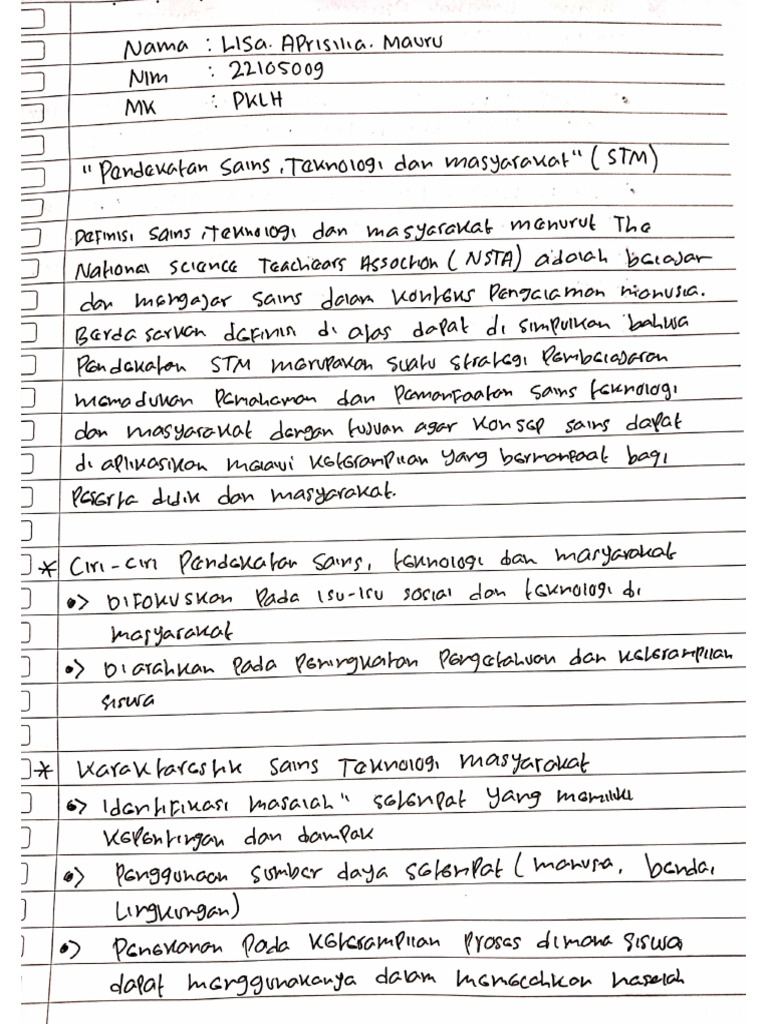 Nama : Lisa. Aprisilia. Mauru
Nim : 22105009
MK : PKLH
"Pendekatan Sains, Teknologi dan masyarakat" (STM)
Definisi sains, teknologi dan masyarakat menurut The
National Science Teachears Assoction (NSTA) adalah belajar
dan mengajar sains dalam konteks pengalaman manusia.
Berda sarkan definisi di atas dapat di simpulkan bahwa
Pendekatan STM merupakan suatu strategi Pembelajaran
memadukan Pemahaman dan Pemanfaatan sains teknologi
dan masyarakat dengan tujuan agar konsep sains dapat
di aplikasikan melalui keterampilan yang bermanfaat bagi
Peserta didik dan masyarakat.
* Ciri-ciri Pendekatan sains, teknologi dan masyarakat
•> Difokuskan pada isu-isu sosial dan teknologi di
masyarakat
•> Diarahkan pada peningkatan Pengetahuan dan keterampilan
siswa
* Karaktarestik sains Teknologi masyarakat
•> Identifikasi masalah" setempat yang memiliki
kepentingan dan dampak
•> Penggunaan sumber daya setempat (manusa, benda,
lingkungan)
•> Penekanan Pada keterampilan proses dimana siswa
dapat menggunakanya dalam memecahkan masalah